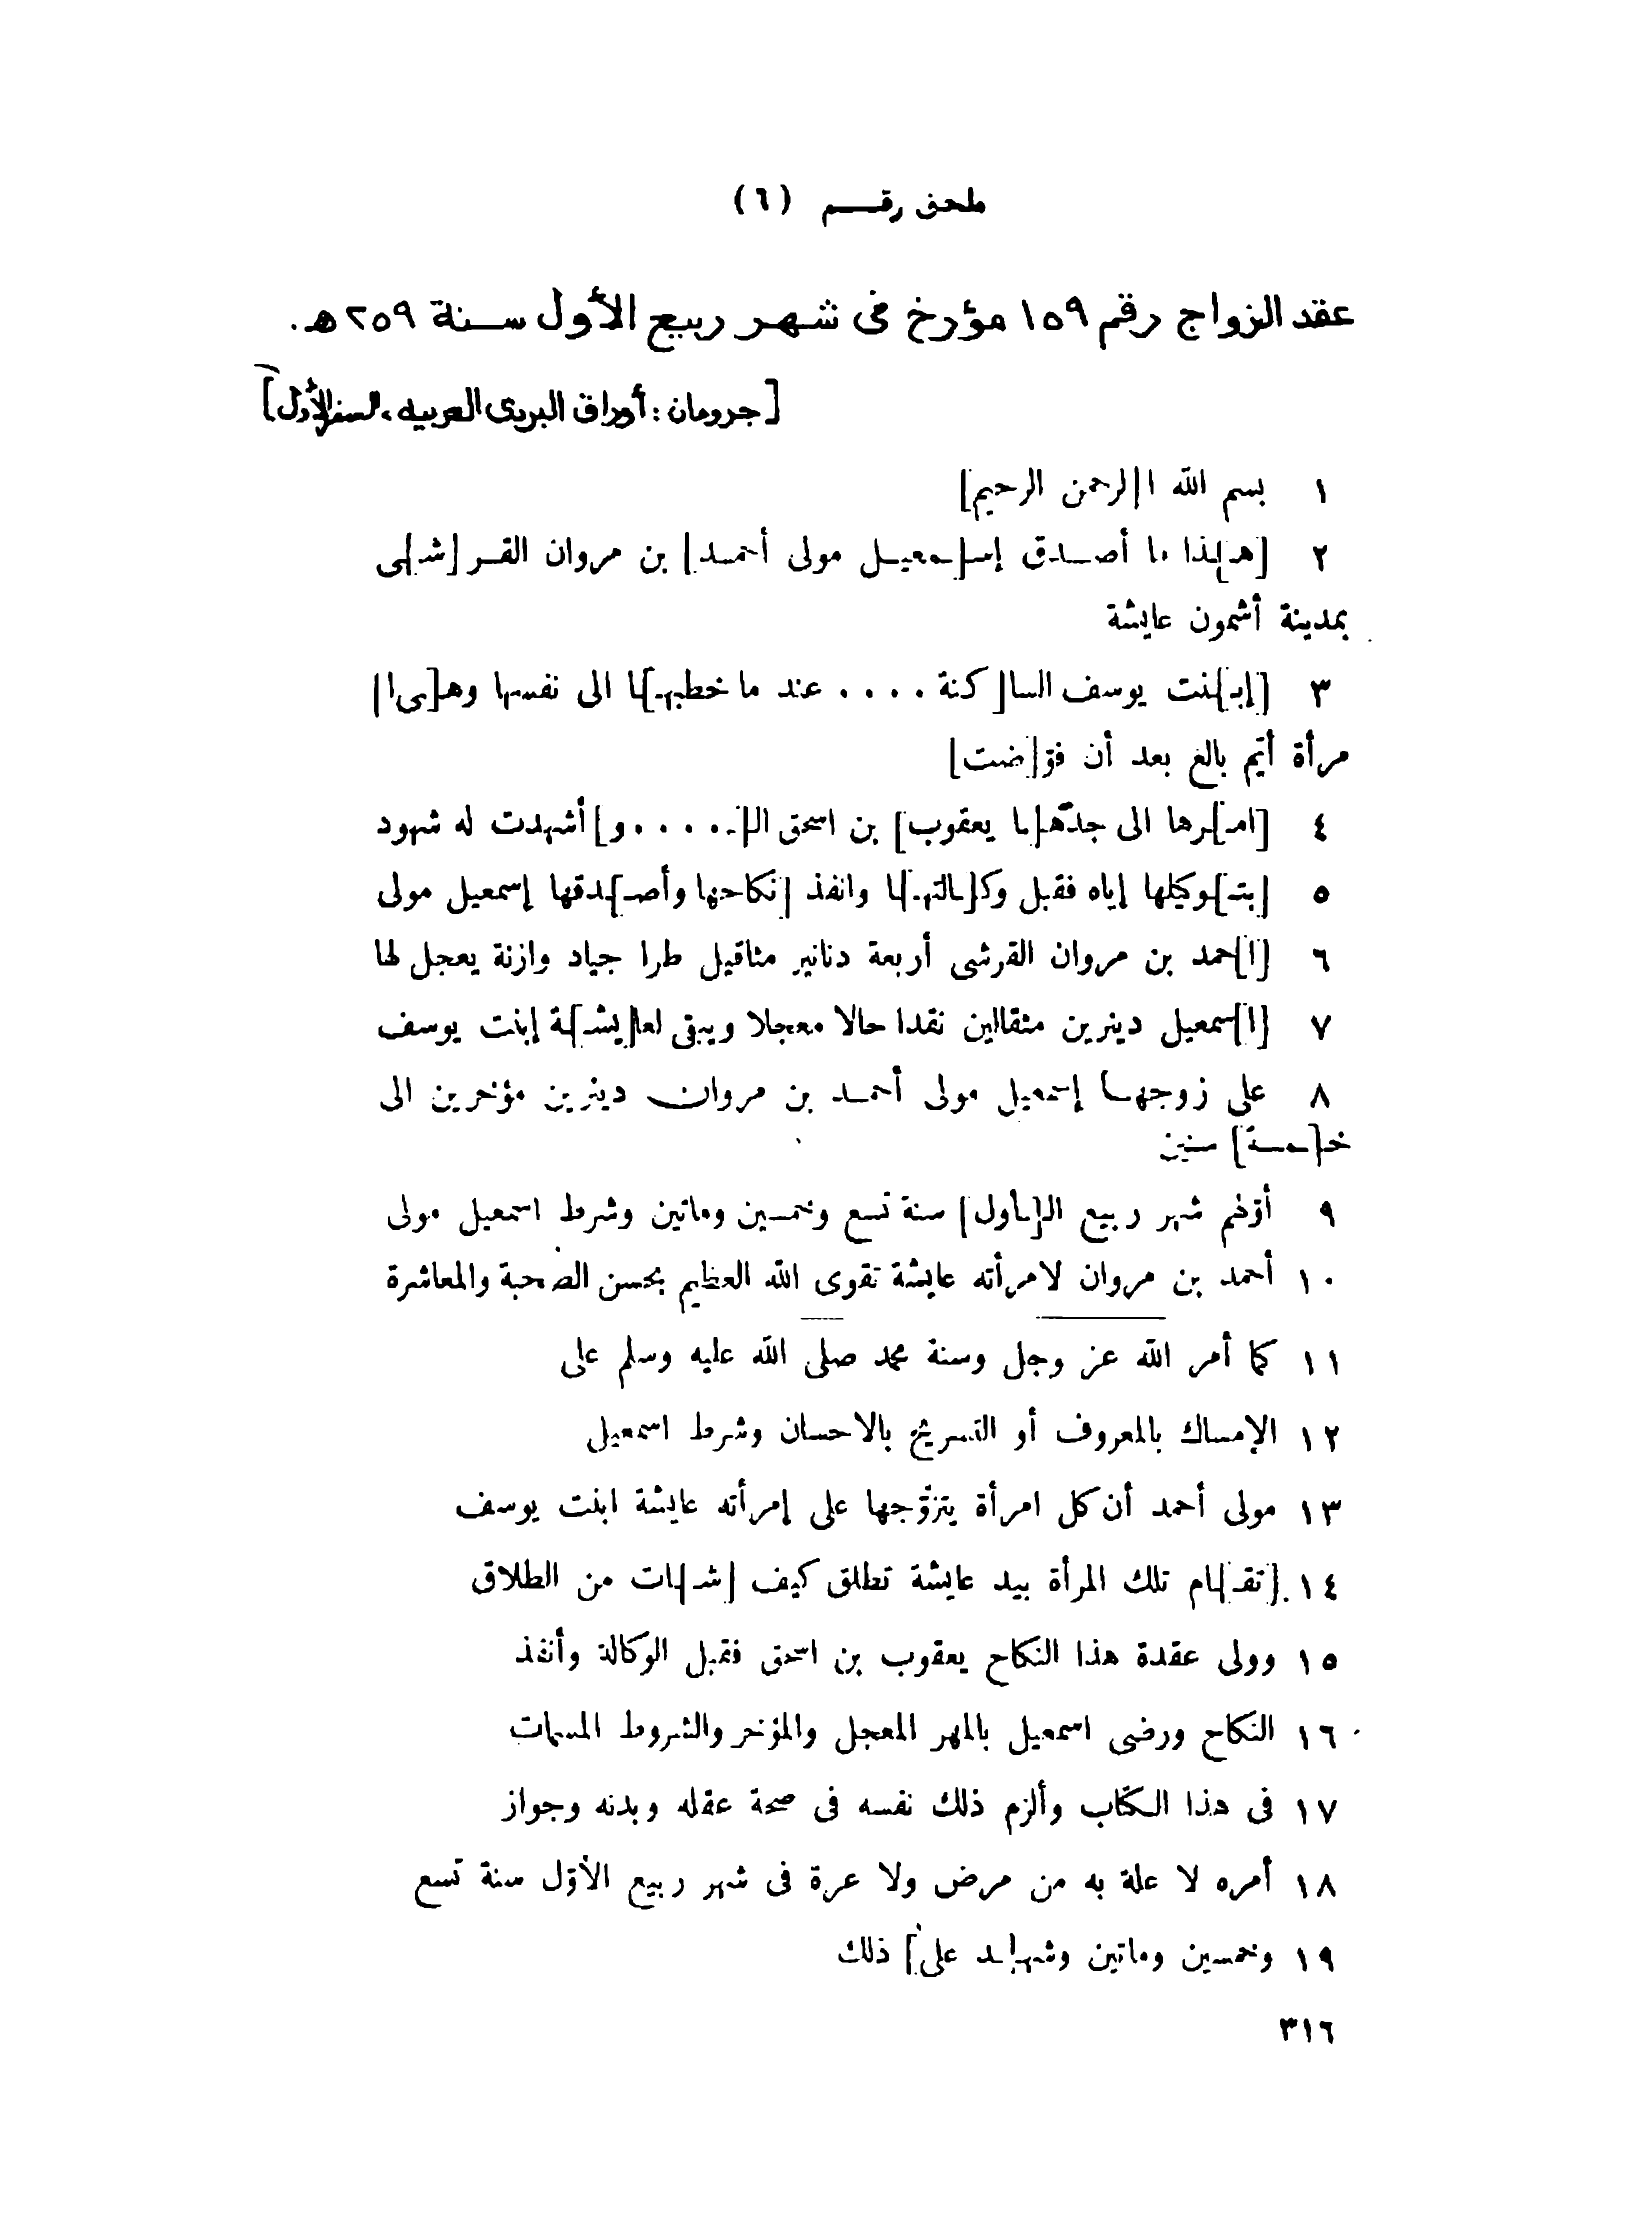 ملحق رقم (٦)
عقد الزواج رقم ١٥٩ مؤرخ فى شهر ربيع الأول سنة ٢٥٩ هـ.
[جروهمان : أوراق البردى العربيه ، السفر الأول]
١ بسم الله ا[لرحمن الرحيم]
٢ [هـ]ذا ما أصدق إسـ[ـمعيل مولى أحمد] بن مروان القر[شـ]ى
بمدينة أشمون عايشة
٣ [إبـ]نت يوسف السا[كنة .... عند ما خطبهـ]ـا الى نفسها وهـ[ـى ا]
مرأة أيّم بالغ بعد أن فوّ[ضت]
٤ [امـ]ـرها الى جدّهـ[ـا يعقوب] بن اسحق الـ[ـ.....و] أشهدت له شهود
٥ [بتـ]ـوكيلها إياه فقبل وكـ[ـالتهـ]ـا وانفذ [نكاحها وأصـ]ـدقها إسمعيل مولى
٦ [ا]حمد بن مروان القرشى أربعة دنانير مثاقيل طرا جياد وازنة يعجل لها
٧ [ا]سمعيل دينرين مثقالين نقدا حالا معجلا ويبقى لعا[يشـ]ـة إبنت يوسف
٨ على زوجها إسمعيل مولى أحمد بن مروان دينرين مؤخرين الى
خـ[ـمسة] سنين
٩ أوّلهم شهر ربيع الـ[ـأول] سنة تسع وخمسين وماتين وشرط اسمعيل مولى
١٠ أحمد بن مروان لامرأته عايشة تقوى الله العظيم بحسن الصحبة والمعاشرة
١١ كما أمر الله عز وجل وسنة محمد صلى الله عليه وسلم على
١٢ الإمساك بالمعروف أو التسريح بالاحسان وشرط اسمعيل
١٣ مولى أحمد أن كل امرأة يتزوّجها على إمرأته عايشة ابنت يوسف
١٤ [تقـ]ـام تلك المرأة بيد عايشة تطلق كيف [شـ]ـات من الطلاق
١٥ وولى عقدة هذا النكاح يعقوب بن اسحق فقبل الوكالة وأنفذ
١٦ النكاح ورضى اسمعيل بالمهر المعجل والمؤخر والشروط المسمات
١٧ فى هذا الكتاب وألزم ذلك نفسه فى صحة عقله وبدنه وجواز
١٨ أمره لا علة به من مرض ولا عرة فى شهر ربيع الأوّل سنة تسع
١٩ وخمسين وماتين وشهـ[ـد على] ذلك
٣١٦